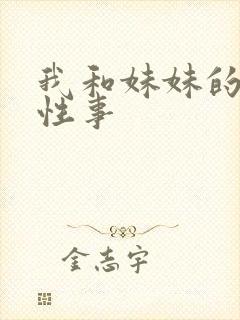 我和妹妹的
性事
金志宇